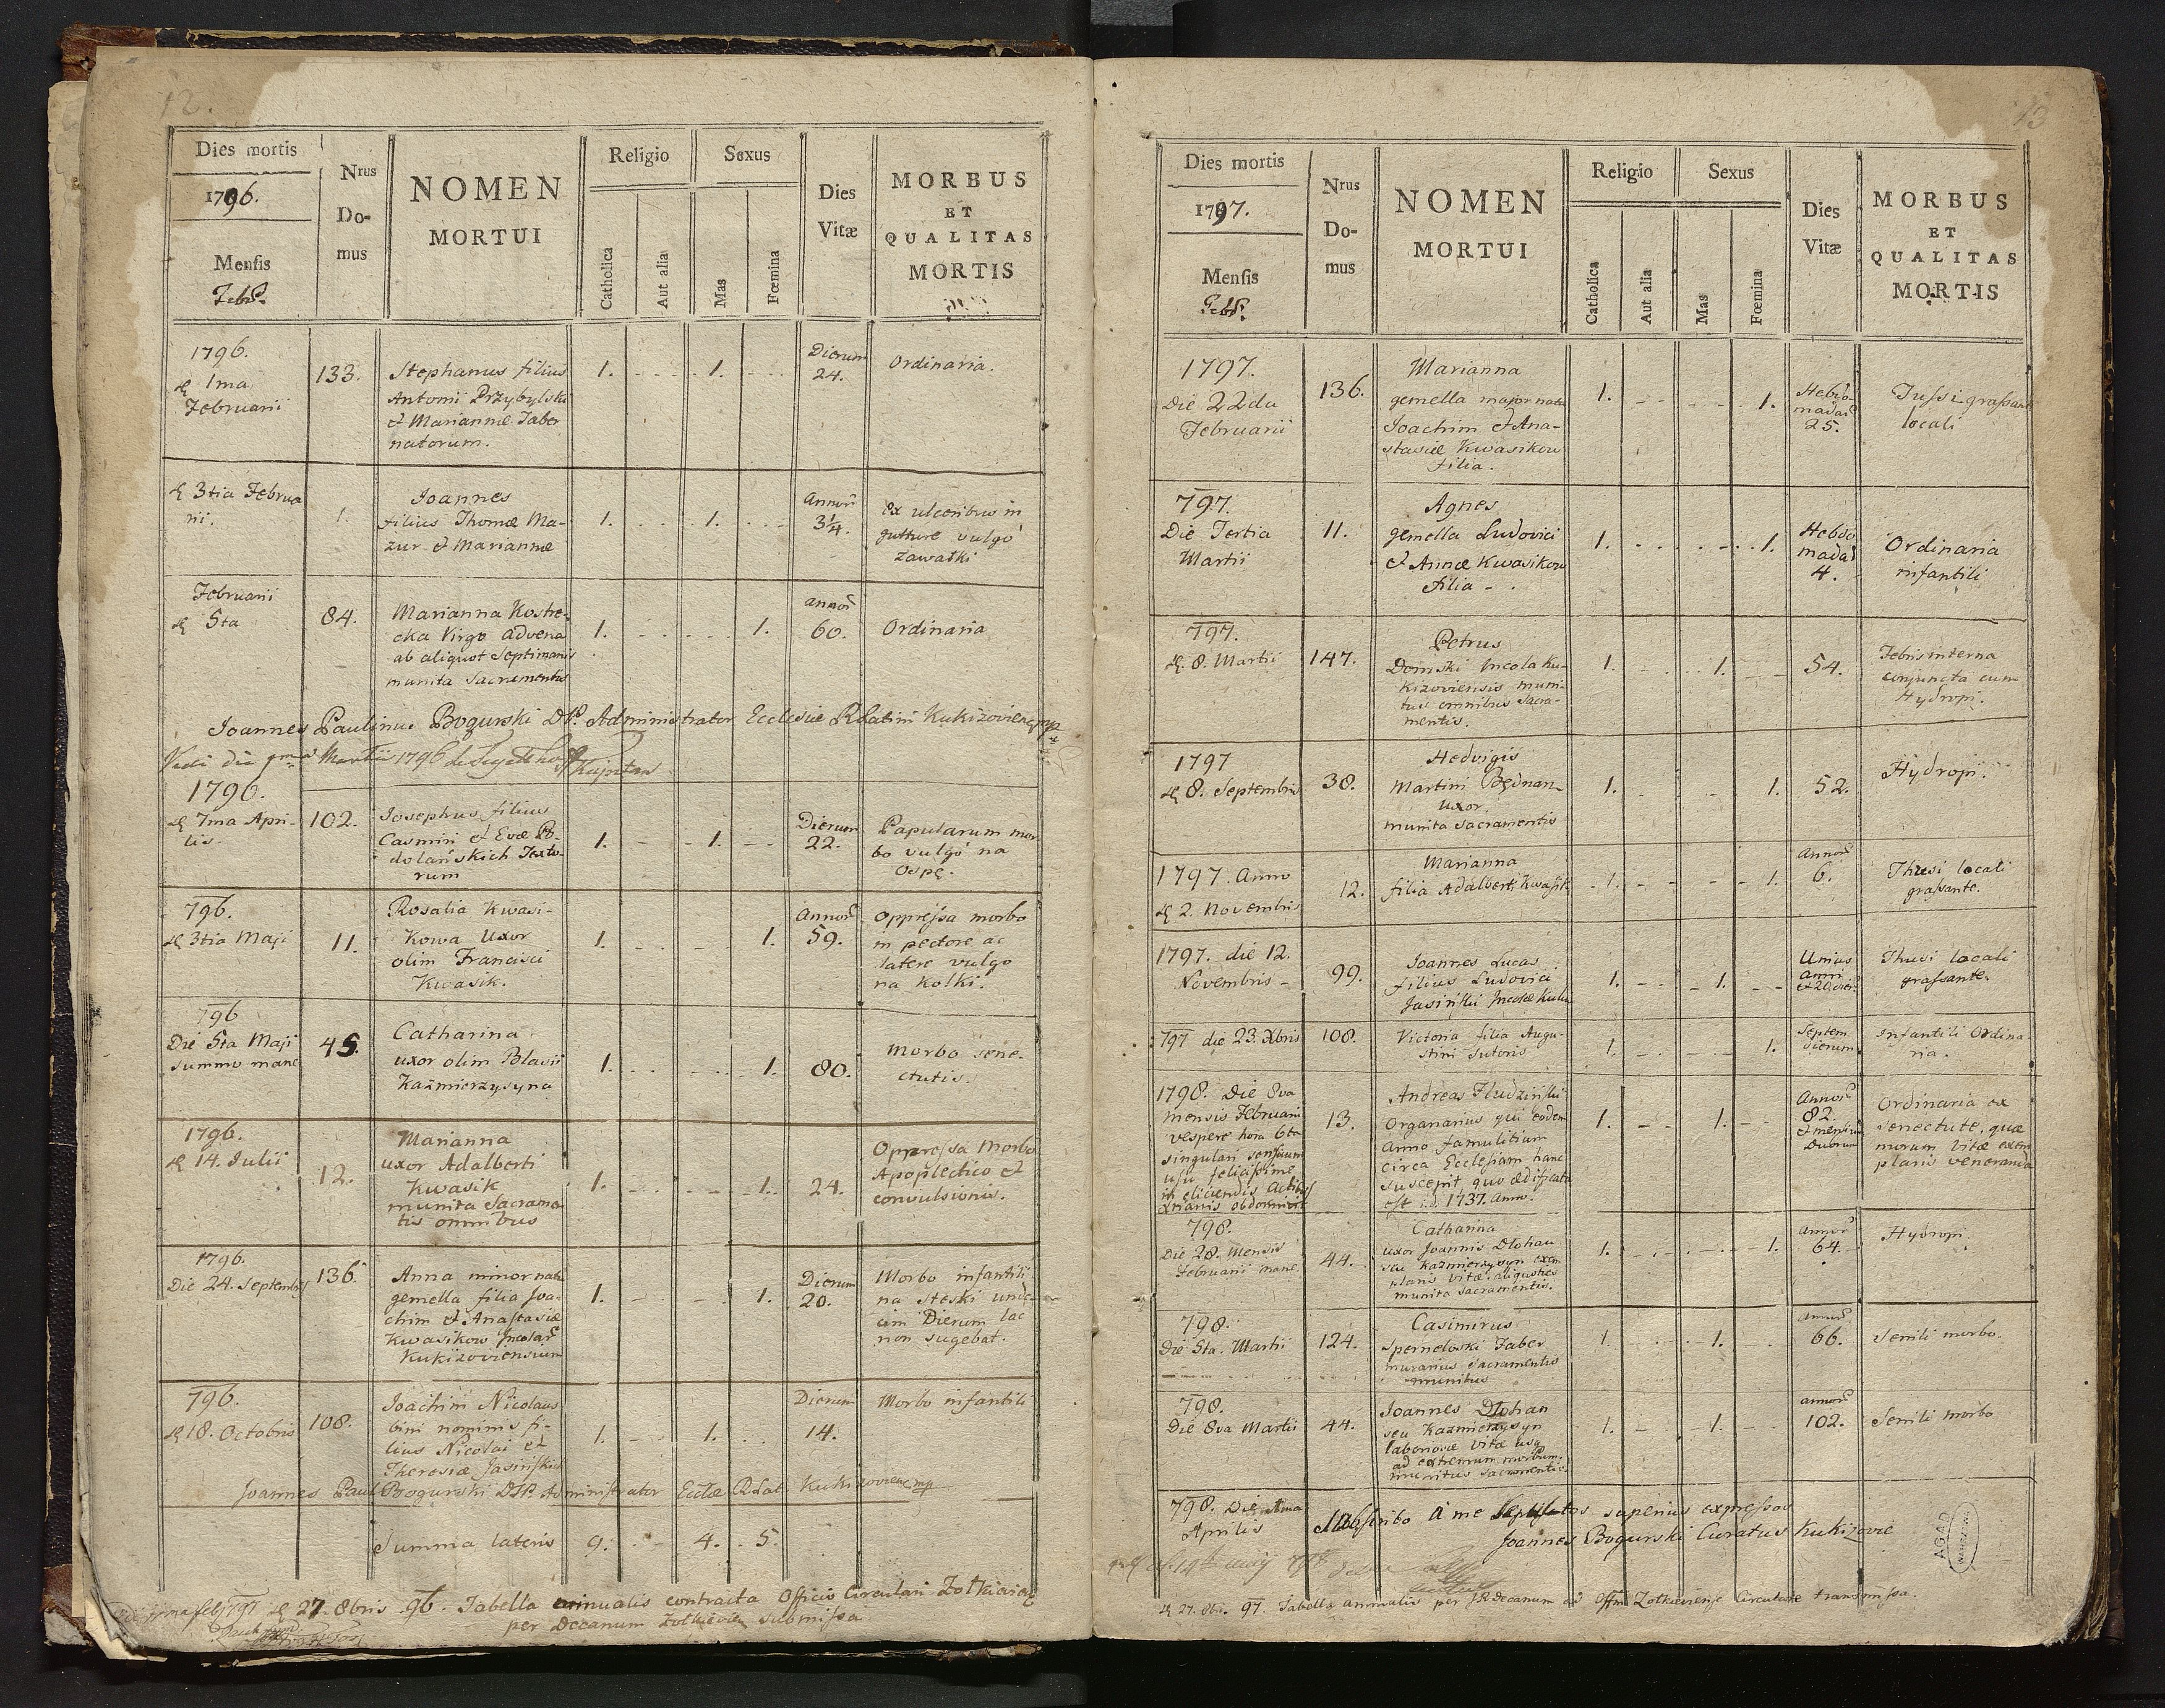 12.
Dies mortis
1796.
Mensis
Febr.
Nrus
Do-
mus
NOMEN
MORTUI
Religio
Catholica
Aut alia
Sexus
Mas
Fœmina
Dies
Vitæ
MORBUS
ET
QUALITAS
MORTIS
1796.
1ma
Februarii
133.
Stephanus filius
Antonii Przybylski
et Mariannæ Faber
natorum.
1.
1.
Dierum
24.
Ordinaria.
3tia Februa
rii.
1.
Joannes
filius Thomæ Ma-
zur et Mariannæ
1.
1.
Annor
3 1/4.
ex ulceribus in
gutture vulgo
zawałki
Februarii
5ta
84.
Marianna Kostre-
cka Virgo advena
ab aliquot Septimanis
munita Sacramentis
1.
1.
annor
60.
Ordinaria
Joannes Paulinus Bogurski Administrator Ecclesiæ R Latini Kukizoviens mp
Vidi die Martii 1796
1796.
7ma Apri-
lis.
102.
Josephus filius
Casimiri et Evæ Po-
dolańskich Texto-
rum
1.
1.
Dierum
22.
Papularum mor
bo vulgo na
Ospę.
796.
3tia Maji
11.
Rosalia Kwasi-
kowa Uxor
olim Francisci
Kwasik.
1.
1.
Annor
59.
Oppressa morbo
in pectore ac
latere vulgo
na kolki.
796
Die 5ta Maji
summo mane
45.
Catharina
uxor olim Blasii
Kazmierzysyna
1.
1.
80.
Morbo sene-
ctutis.
1796.
14. Julii
12.
Marianna
uxor Adalberti
Kwasik
munita Sacrame
tis omnibus
1.
1.
24.
Oppressa Morbo
Apoplectico et
convulsionis.
1796.
Die 24. Septembris
136.
Anna minor natu
gemella filia Joa-
chim et Anastasiæ
Kwasikow Incolar
Kukizoviensium
1.
1.
Dierum
20.
Morbo infantili
na steski unde-
cim Dierum lac
non sugebat.
796.
18. Octobris
108.
Joachim Nicolaus
bini nominis fi-
lius Nicolai et
Theresiæ Jasińskich
1.
1.
Dierum
14.
Morbo infantili
Joannes Paul Bogurski Administrator Eccłæ R Lat Kukizoviens mp
Summa lateris 9. 4. 5.
27. 8bris 96. Tabella annualis contracta Officio Circulari Zołkiewien
per Decanum Zolkievien submissa
13
Dies mortis
1797.
Mensis
Febr.
Nrus
Do-
mus
NOMEN
MORTUI
Religio
Catholica
Aut alia
Sexus
Mas
Fœmina
Dies
Vitæ
MORBUS
ET
QUALITAS
MORTIS
1797.
Die 22da
Februarii
136.
Marianna
gemella major natu
Joachim et Ana-
stasiæ Kwasikow
filia.
1.
1.
Hebdo-
madar
25.
Tussi grassant
locali
797.
Die Tertia
Martii
11.
Agnes
gemella Ludovici
et Annæ Kwasikow
filia
1.
1.
Hebdo
madar
4.
Ordinaria
infantili
797.
8. Martii
147.
Petrus
Domski Incola Ku-
kizoviensis muni-
tus omnibus Sacra-
mentis.
1.
1.
54.
Febris interna
conjuncta cum
Hydropi.
1797
8. Septembris
38.
Hedvigis
Martini Bednarz
uxor.
munita Sacramentis
1.
1.
52.
Hydropi.
1797. Anno
2. Novembris
12.
Marianna
filia Adalberti Kwasik
1.
1.
Annor
6.
Thusi locali
grassante.
1797. die 12.
Novembris
99.
Joannes Lucas
filius Ludovici
Jasiński Incolæ Kuku
1.
1.
Unius
anni
et 20 dier
Thusi locali
grassante.
797 die 23. Xbris
108.
Victoria filia Augu-
stini Sutoris
1.
1.
Septem
Dierum
Infantili Ordina
ria.
1798. Die 8va
mensis Februarii
vespere hora 6ta
singulari sensuum
usu felicissime
in eliciendis actibus
Xtianis obdormivit
13.
Andreas Fludziński
Organarius qui eodem
anno famulitium
circa Ecclesiam hanc
suscepit, quo ædificata
est i.d. 1737. Anno.
1.
1.
Annor
82.
et mensium
Duorum
Ordinaria ex
senectute, quæ
morum vitæ exem
plaris veneranda
798.
Die 28. Mensis
Februarii mane.
44.
Catharina
uxor Joannis Dłohan
seu Kazmierzysyn exem
plaris vitæ, aliquoties
munita Sacramentis.
1.
1.
annor
64.
Hydropi
798.
Die 5ta. Martii
124.
Casimirus
Spernelowski Faber
murarius Sacramentis
munitus
1.
1.
annor
66.
Senili morbo.
798.
Die 8va Martii
44.
Joannes Dłohan
seu Kazmierzysyn
laboriosæ vitæ usq
ad extremum morbum
munitus Sacramentis.
1.
1.
annor
102.
Senili morbo
798. Die
Aprilis
Subscribo a me sepultos superius expressos
Joannes Bogurski Curatus Kukizovie
27. 8br. 97. Tabella annualis per R Decanum ad Offm Zolkieviense Circulare transmissa.
AGAD